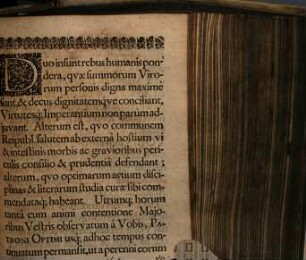 Duo insunt rebus humanis pon-
dera, quæ summorum Viro-
rum personis digna maximè
sunt, & decus dignitatemq́ue conciliant,
Virtutesq́; Imperantium non parum ad-
juvant. Alterum est, quo communem
Reipubl. salutem ab externâ hostium vi
& intestinis morbis ac gravioribus peri-
culis consilio & prudentiâ defendant;
alterum, quo optimarum artium disci-
plinas & literarum studia curæ sibi com-
mendataq́; habeant. Utrumq́; horum
tantâ cum animi contentione Majo-
ribus Vestris observatum à Vobis, PA-
TRONI OPTIMI usq́; adhoc tempus con-
tinuatum permansit, ut à perenni eorum